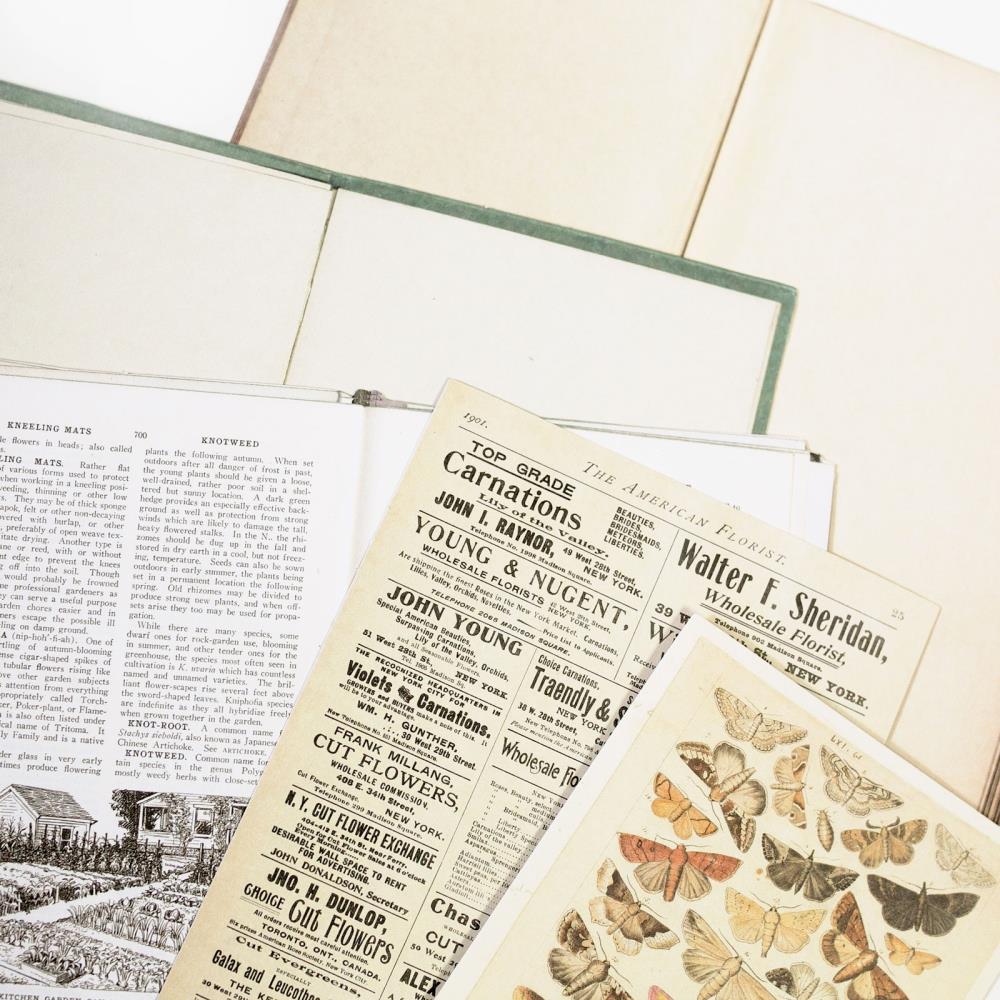 KNEELING MATS
700
KNOTWEED
le flowers in heads; also called
LING MATS. Rather flat
of various forms used to protect
when working in a kneeling posi-
weeding, thinning or other low
They may be of thick sponge
apok, felt or other non-decaying
overed with burlap, or other
preferably of open weave tex-
itate drying. Another type is
ane or reed, with or without
nt edge to prevent the knees
g off into the soil. Though
would probably be frowned
me professional gardeners as
ey can serve a useful purpose
arden chores easier and in
ners escape the possible ill
ling on damp ground.
A (nip-hoh'-fi-ah). One of
rtling of autumn-blooming
nse cigar-shaped spikes of
tubular flowers rising like
ove other garden subjects
attention from everything
propriately called Torch-
er, Poker-plant, or Flame-
is also often listed under
ical name of Tritoma. It
ly Family and is a native
der glass in very early
ns produce flowering
plants the following autumn. When set
outdoors after all danger of frost is past,
the young plants should be given a loose,
well-drained, rather poor soil in a shel-
tered but sunny location. A dark green
hedge provides an especially effective back-
ground as well as protection from strong
winds which are likely to damage the tall,
heavy flowered stalks. In the N., the rhi-
zomes should be dug up in the fall and
stored in dry earth in a cool, but not freez-
ing, temperature. Seeds can also be sown
outdoors in early summer, the plants being
set in a permanent location the following
spring. Old rhizomes may be divided to
produce strong new plants, and when off-
sets arise they too may be used for propa-
gation.
While there are many species, some
dwarf ones for rock-garden use, blooming
in summer, and other tender ones for the
greenhouse, the species most often seen in
cultivation is K. uvaria which has countless
named and unnamed varieties. The bril-
liant flower-scapes rise several feet above
the sword-shaped leaves. Kniphofia species
are indefinite as they all hybridize freely
when grown together in the garden.
KNOT-ROOT. A common name
Stachys sieboldi, also known as Japanese
Chinese Artichoke. See ARTICHOKE,
KNOTWEED. Common name for
tain species in the genus Polyg
mostly weedy herbs with close-set
KITCHEN GARDEN
1901.
THE AMERICAN FLORIST.
25
TOP GRADE
Carnations
Lily of the Valley.
BEAUTIES,
BRIDES,
BRIDESMAIDS,
METEORS,
LIBERTIES.
JOHN I. RAYNOR, 49 West 28th Street,
Telephone No. 1998 Madison Square. NEW YORK.
YOUNG & NUGENT,
WHOLESALE FLORISTS 42 West 28th Street, NEW YORK.
Are shipping the finest Roses in the New York Market, Carnations,
Lilies, Valley, Orchids, Novelties. Price List to Applicants.
TELEPHONE 2065 MADISON SQUARE.
JOHN YOUNG
Special American Beauties,
Surpassing Carnations,
Lily of the Valley, Orchids,
and all Seasonable Flowers.
51 West 28th St., NEW YORK.
Tel. 1905 Madison Sq.
THE RECOGNIZED HEADQUARTERS IN
NEW YORK CITY FOR
Violets Carnations.
GROWERS and BUYERS make a note of this. It
will be to your advantage.
WM. H. GUNTHER,
30 West 29th Street.
New Telephone No. 551 Madison Square.
FRANK MILLANG,
CUT FLOWERS,
WHOLESALE COMMISSION,
408 E. 34th Street,
Cut Flower Exchange. NEW YORK.
Telephone 299 Madison Square.
N.Y. CUT FLOWER EXCHANGE
404-412 E. 34th St. Near Ferry,
Open for Cut Flower Sales at 6 o'clock
Every Morning.
DESIRABLE WALL SPACE TO RENT
FOR ADVERTISING
JOHN DONALDSON, Secretary
JNO. H. DUNLOP,
CHOICE Cut Flowers
All orders receive most careful attention.
TORONTO, ONT., CANADA.
Cut Evergreens,
ESPECIALLY
Galax and Leucothoe
30 West 29th
Walter F. Sheridan,
Wholesale Florist,
Telephone 902 Madison Square.
39 NEW YORK.
Choice Carnations,
Traendly &
38 W. 28th Street,
NEW YORK
Wholesale Flo
Roses, Beauty,
Liberty
Adiantum
Chas
CUT
50 West
ALEX
LVI. 61